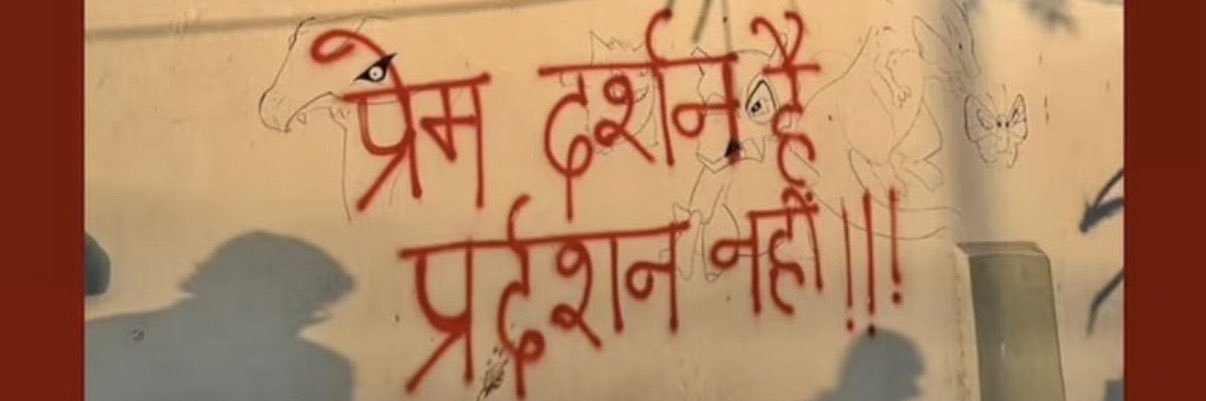 प्रेम दर्शन है
प्रर्दशन नहीं!!!